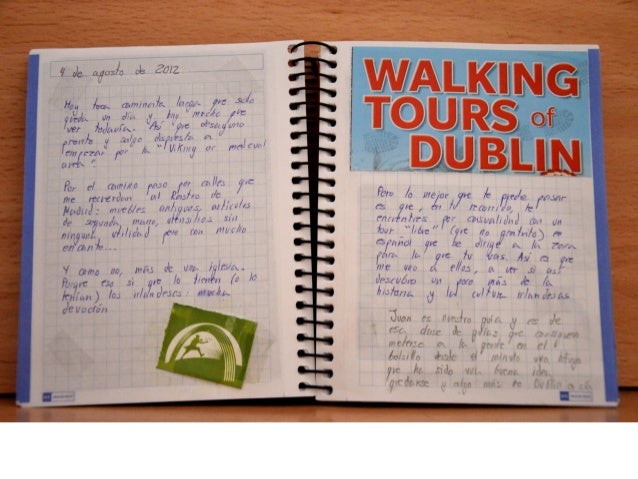 4 de agosto de 2012
Hoy toca caminata larga que solo
queda un día y hay mucho que
ver todavía. Así que desayuno
pronto y salgo dispuesta a
empezar por la "Viking or medieval
area".
Por el camino paso por calles que
me recuerdan al Rastro de
Madrid: muebles antiguos, artículos
de segunda mano, utensilios sin
ninguna utilidad pero con mucho
encanto...
Y como no, más de una iglesia.
Porque eso si que lo tienen (o lo
tenían) los irlandeses: mucha
devoción
WALKING
TOURS of
DUBLIN
Pero lo mejor que te puede pasar
es que, en tu recorrido, te
encuentres por casualidad con un
tour "libre" (que no gratuito) en
español que se dirige a la zona
para la que tu vas. Así es que
me uno a ellos, a ver si así
descubro un poco más de la
historia y la cultura irlandesas
Juan es nuestro guía y es de
esa clase de guías que consiguen
meterse a la gente en el
bolsillo desde el minuto uno. Intuyo
que ha sido una buena idea
quedarse y algo más de Dublín